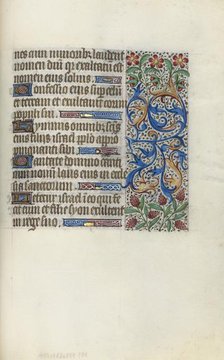 nes cum iunioribz laudent
nomen dni qr exaltatu est
nomen eius solius
Confessio eius super celu
et terram et exaltavit cornu
appli sui
Hymnus omnibz scis
eius filiis israel pplo appro
pinquanti sibi
Cantate domino canti
cum nouu laus eius in eccle
sia sanctorum
Letetur israel i eo qui fe
cit eum et filie syon exultent
in rege suo